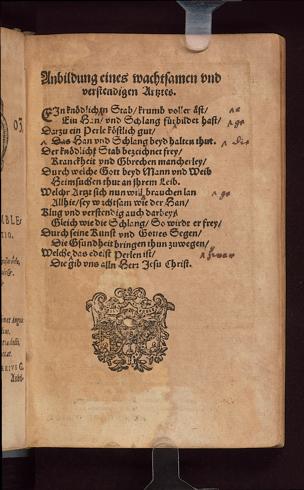 Anbildung eines wachtsamen vnd
verstendigen Artztes.
EIn knödlichtn Stab/ krumb voller äst/
Ein Han/ vnd Schlang fürbildet hast/
Darzu ein Perle köstlich gut/
Das Han vnd Schlang beyd halten thut.
Der knödlicht Stab bezeichnet frey/
Kranckheit vnd Gbrechen mancherley/
Durch welche Gott beyd Mann vnd Weib
Heimsuchen thut an jhrem Leib.
Welchr Artzt sich nun will brauchen lan
Allhie/ sey wachtsam wie der Han/
Klug vnd verstendig auch darbey
Gleich wie die Schlang/ So wirdt er frey/
Durch seine Kunst vnd Gottes Segen/
Die Gsundheit bringen thun zuwegen/
Welche das edelst Perlen ist/
Die gib vns alln Herr Jesu Christ.